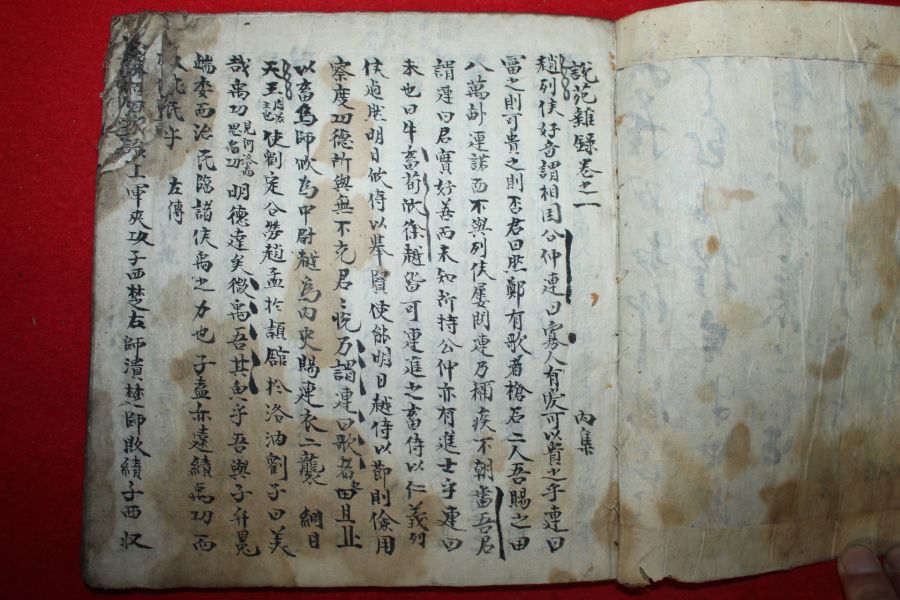 說苑雜錄卷之一 內集
趙列侯好音謂相国公仲連曰寡人有愛可以貴之乎連曰
富之則可貴之則否君曰然鄭有歌者槍石二人吾賜之田
人萬畝連諾而不與列侯屢問連乃稱疾不朝番吾君
謂連曰君實好善而未知所持公仲亦有進士乎連曰
未也曰牛畜荀欣徐越皆可連進之畜侍以仁義列
侯逌然明日欣侍以擧賢使能明日越侍以節則儉用
察度功德所與無不充君〻悅乃謂連曰歌者田且止
以畜爲師欣爲中尉越爲內史賜連衣二襲 綱目
天王 使劉定公勞趙孟於潁館於洛汭劉子曰美
哉禹功 見河洛 思禹功 明德遠矣微禹吾其魚乎吾與子弁冕
端委而治民臨諸侯禹之力也子盍亦遠績禹功而
庇民乎 左傳
上軍夾攻子西楚右師潰楚師敗績子西收